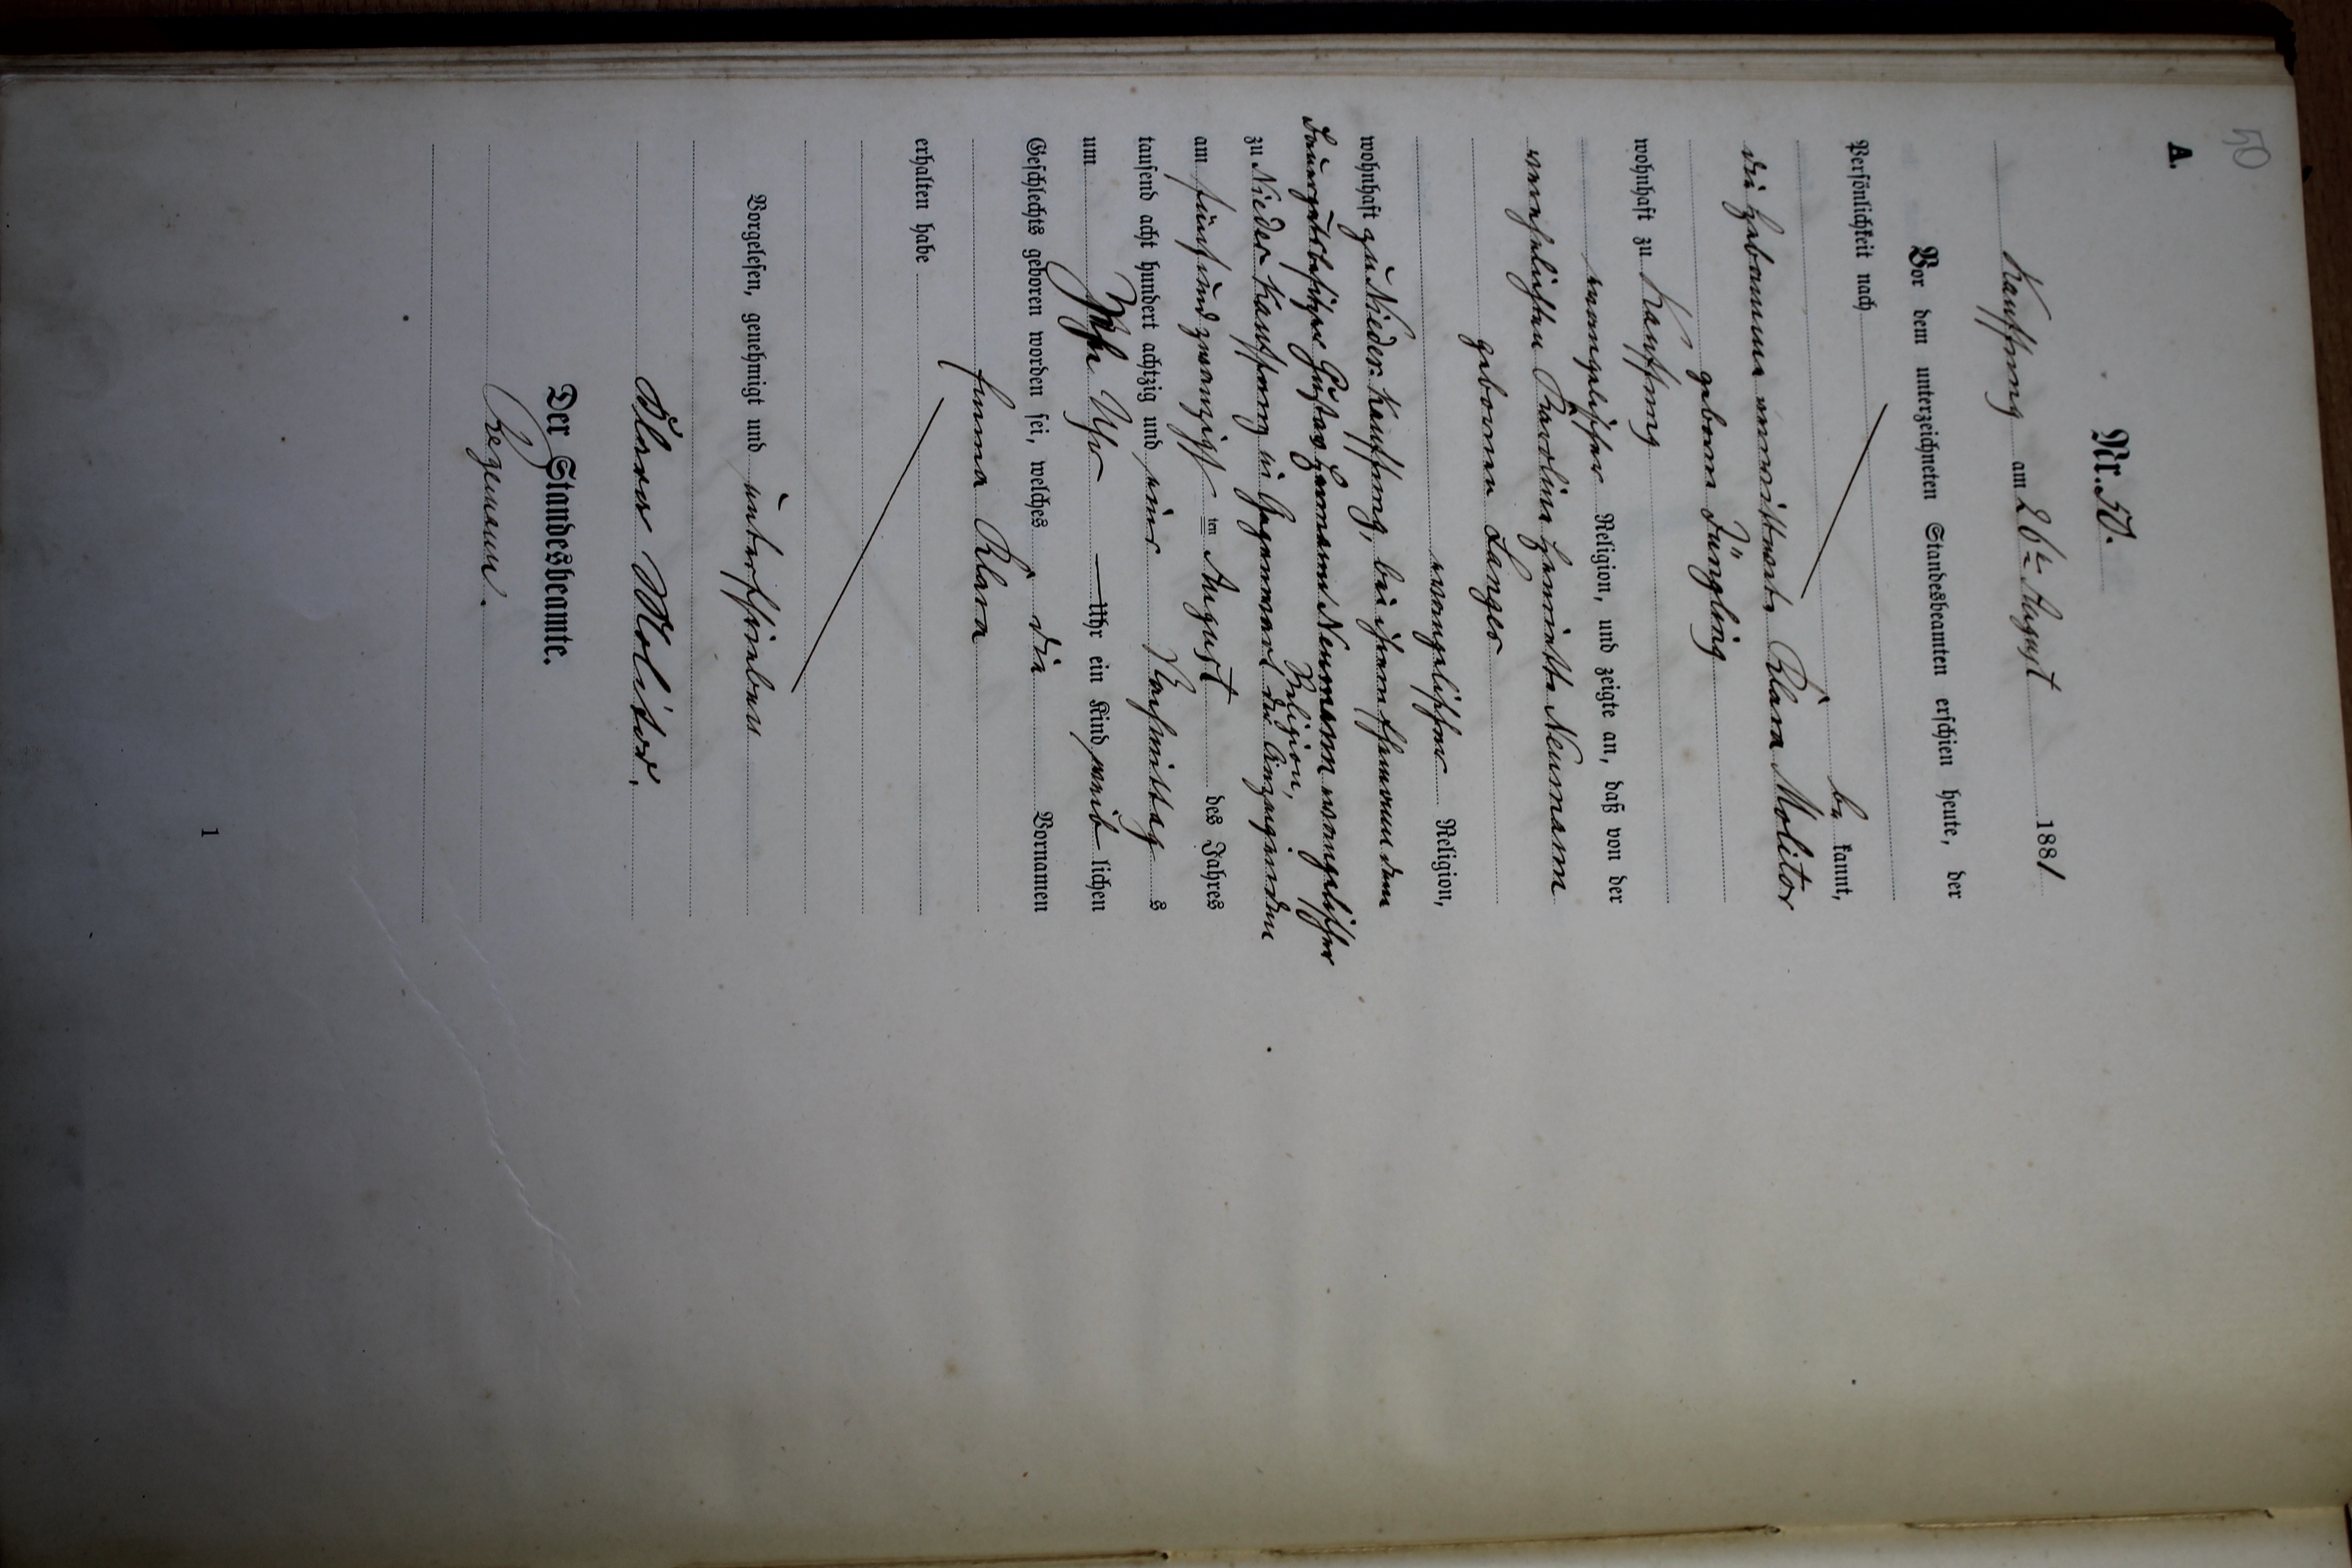 50
A.
Nr. 50.
Kauffung am 26ten August 1881
Vor dem unterzeichneten Standesbeamten erschien heute, der
Persönlichkeit nach
be kannt,
die Hebamme verwittwete Klara Molitor
geborne Jüngling
wohnhaft zu Kauffung
evangelischer Religion, und zeigte an, daß von der
verehelichten Karoline Henriette Neumann
gebornen Langer
evangelischer Religion,
wohnhaft zu Nieder-Kauffung, bei ihrem Ehemann dem
Bauergutsbesitzer Gustav Hermann Neumann evangelischer
Religion,
zu Nieder-Kauffung in Gegenwart der Anzeigenden
am fünfundzwanzigsten August des Jahres
tausend acht hundert achtzig und eins Nachmittag s
um Uhr Uhr ein Kind weib lichen
Geschlechts geboren worden sei, welches die Vornamen
Emma Klara
erhalten habe
Vorgelesen, genehmigt und unterschrieben
Klara Molitor.
Der Standesbeamte.
1